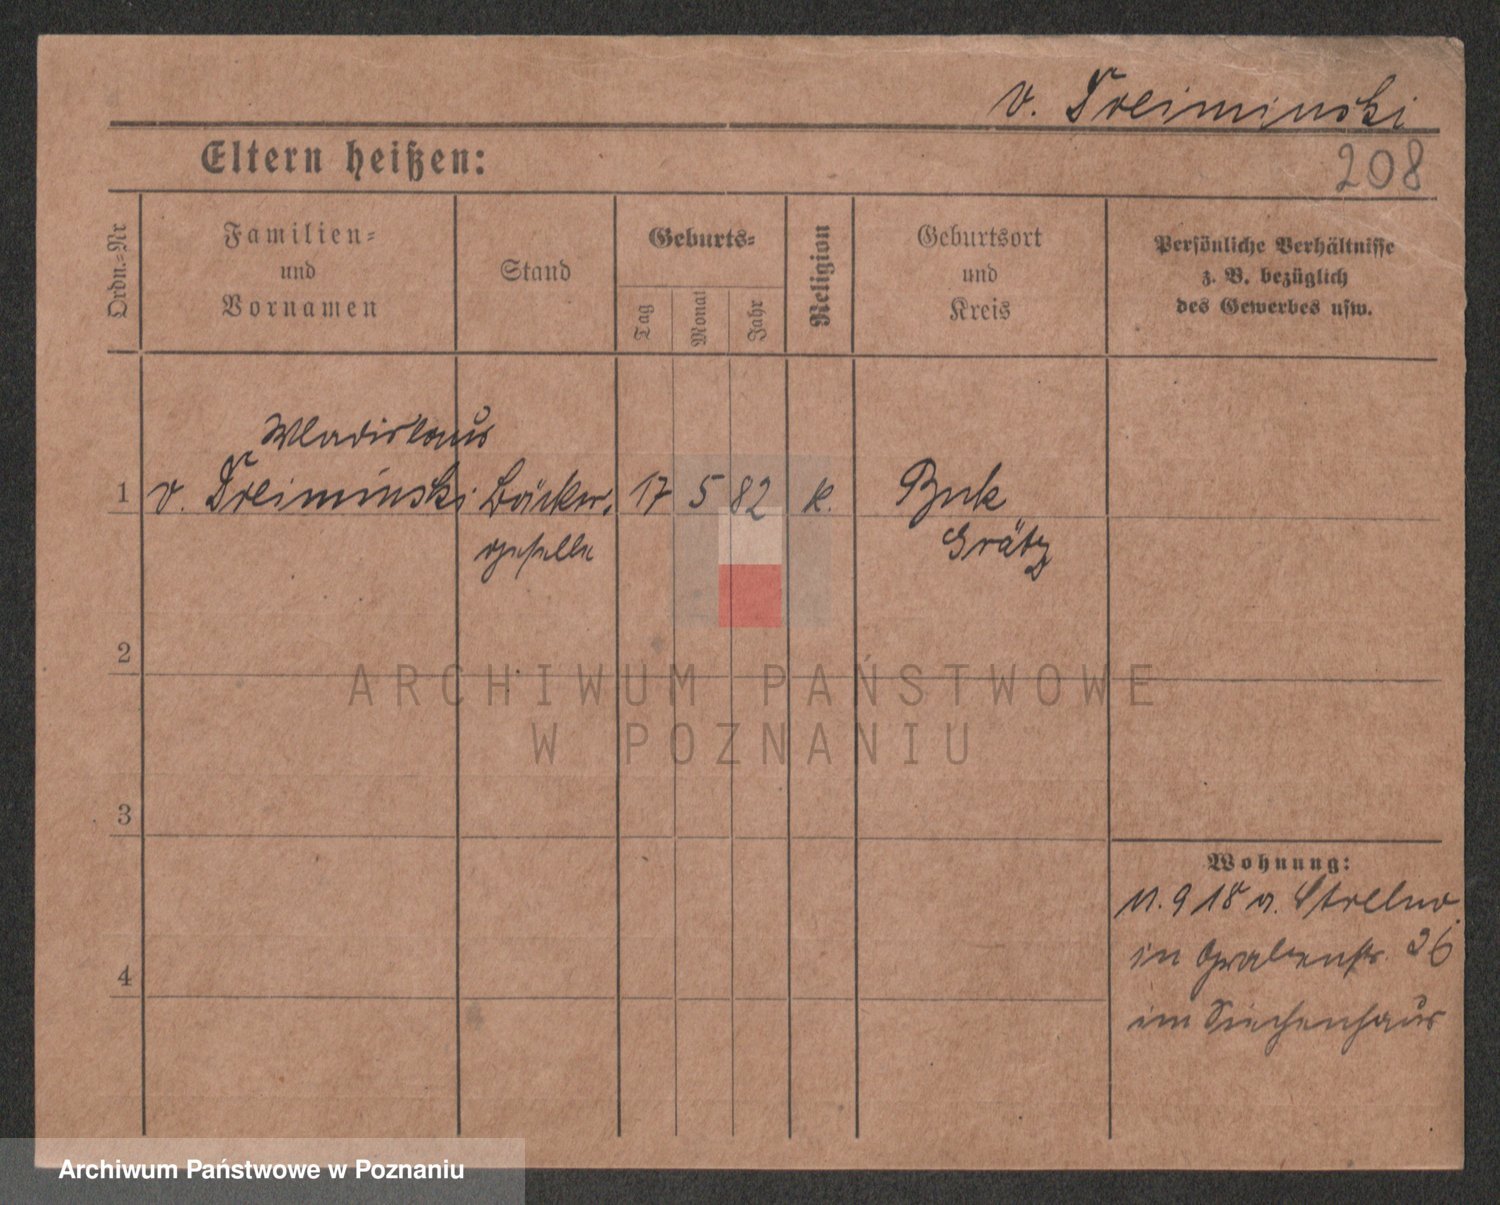 v. Treiminski
Eltern heißen:
208
Ordn.=Nr
Familien=
und
Vornamen
Stand
Geburts=
Tag
Monat
Jahr
Religion
Geburtsort
und
Kreis
Persönliche Verhältnisse
z. B. bezüglich
des Gewerbes usw.
Wladislaus
1 v. Treiminski Bäcker= 17 5 82 k. Buk
geselle Grätz
2
3
4
Wohnung:
11. 9 18 a. Strelno
in Grabenstr. 26
im Siechenhaus
ARCHIWUM PAŃSTWOWE
W POZNANIU
Archiwum Państwowe w Poznaniu